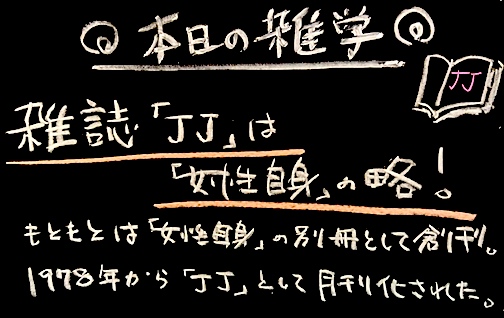 本日の雑学
JJ
雑誌「JJ」は
「女性自身」の略!
もともとは「女性自身」の別冊として創刊。
1978年から「JJ」として月刊化された。